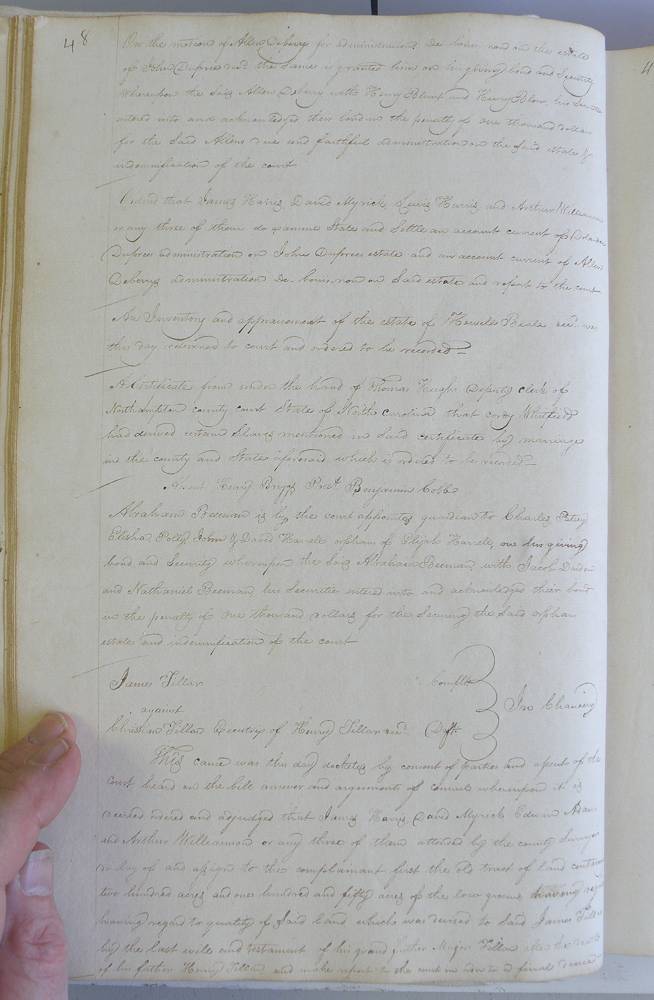 48
On the motion of Allen Deberry for administration de bonis non on the estate
of John Dupree decd. the same is granted him on his giving bond and security
Whereupon the said Allen Deberry with Henry Blunt and Henry Blow his Securities
entered into and acknowledged their bond in the penalty of one thousand dollars
for the said Allens due and faithful administration on the said estate &
indemnification of the court
Ordered that James Harris David Myrick Lewis Harris and Arthur Williamson
or any three of them do examine State and Settle an account current of
Duprees administration on John Duprees estate and an account current of Allen
Deberrys administration de bonis non on said estate and report to the court
An Inventory and appraisement of the estate of Beale decd. was
this day returned to court and ordered to be recorded
A Certificate from under the hand of Thomas Hughs Deputy clerk of
Northampton county court State of North Carolina that Whitfield
had derived certain Slaves mentioned in said certificate by marriage
in the county and State aforesaid which is ordered to be recorded
Absent Henry Briggs Prest. Benjamin Cobb
Abraham Beeman is by the court appointed guardian to Charles Patsey
Elisha Polly John & David Harrell orphans of Elijah Harrell, on his giving
bond and Security whereupon the said Abraham Beeman with Jacob Darden
and Nathaniel Beeman his Securities entered into and acknowledged their bond
in the penalty of one thousand dollars for the Securing the said orphans
estate and indemnification of the court
James Tillar Complt.
against In Chancery
Christian Tillar Executrix of Henry Tillar decd. Deft.
This cause was this day docketed by consent of parties and upon the
court heard on the bill answer and arguments of counsel whereupon it is
decreed ordered and adjudged that James Harris, David Myrick Edwin Adams
and Arthur Williamson or any three of them attended by the county Surveyor
do lay of and assign to the complainant first the old tract of land containing
two hundred acres and one hundred and fifty acres of the low grounds having regard
having regard to quality of said land which was devised to said James Tillar
by the last will and testament of his grand father Major Tillar after the death
of his father Henry Tillar and make report to the court in order to a final decree